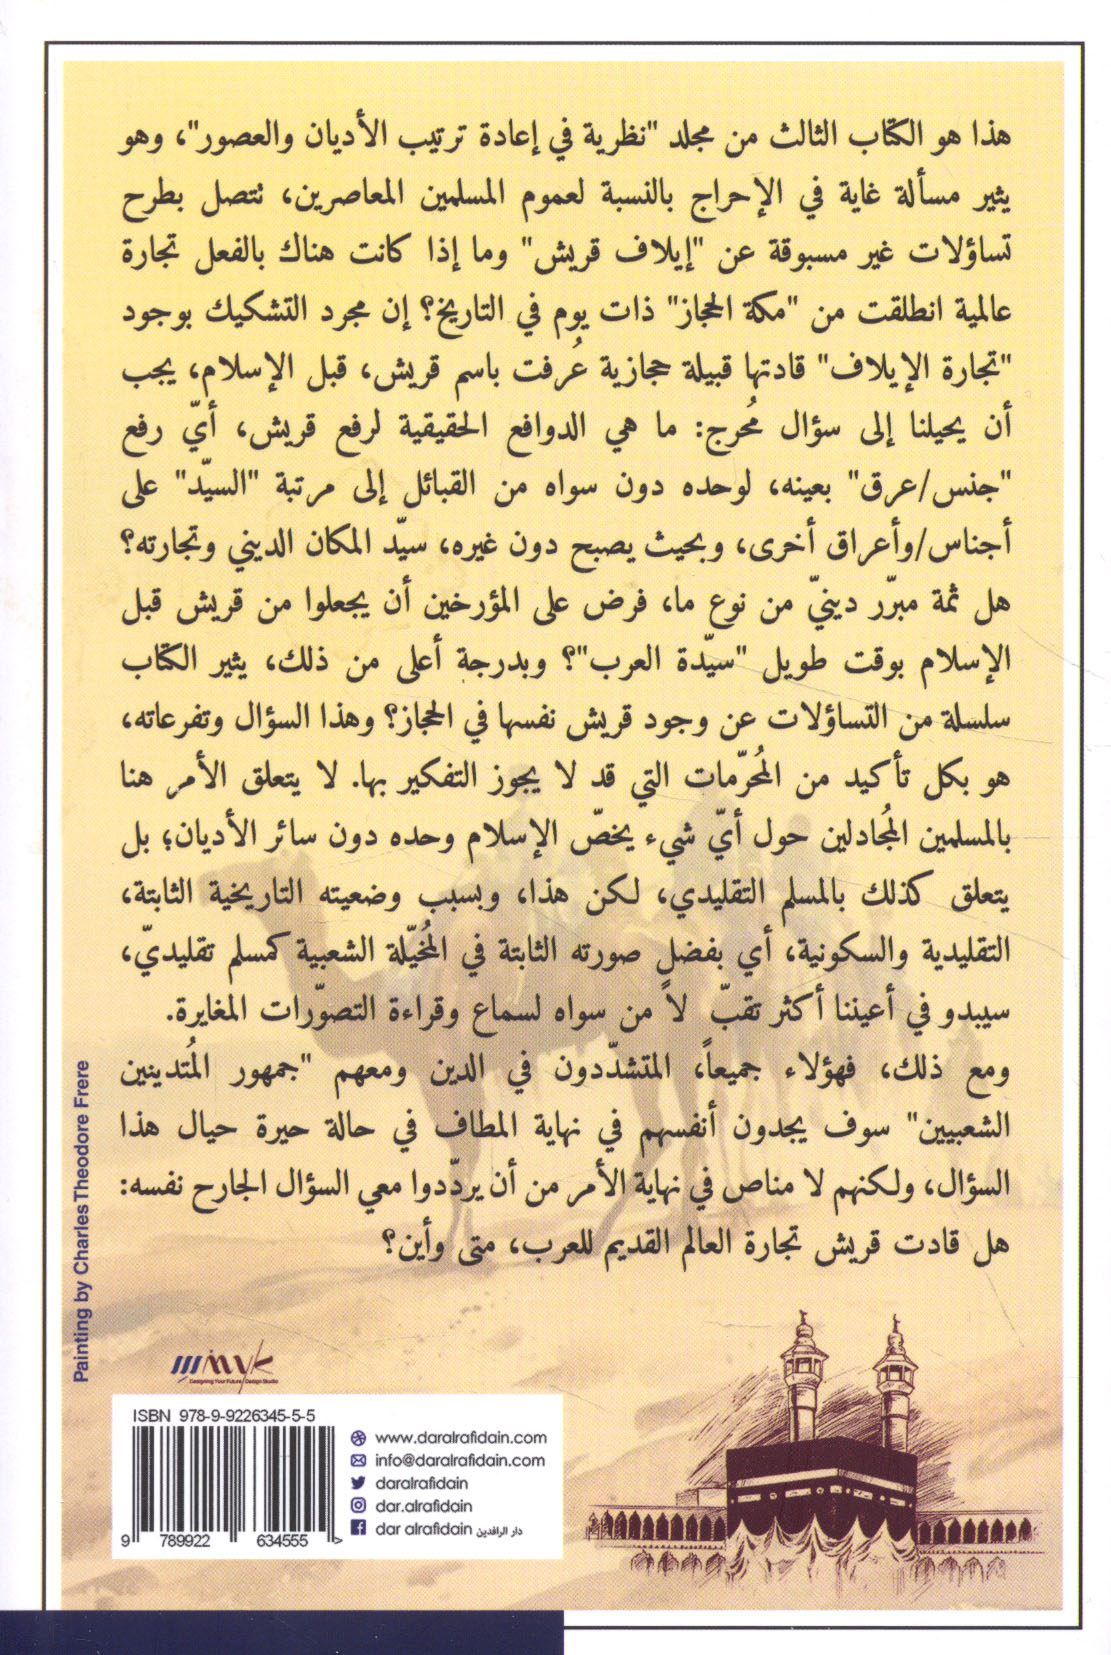 هذا هو الكتاب الثالث من مجلد "نظرية في إعادة ترتيب الأديان والعصور"، وهو
يثير مسألة غاية في الإحراج بالنسبة لعموم المسلمين المعاصرين، تتصل بطرح
تساؤلات غير مسبوقة عن "إيلاف قريش" وما إذا كانت هناك بالفعل تجارة
عالمية انطلقت من "مكة الحجاز" ذات يوم في التاريخ؟ إن مجرد التشكيك بوجود
"تجارة الإيلاف" قادتها قبيلة حجازية عُرفت باسم قريش، قبل الإسلام، يجب
أن يحيلنا إلى سؤال مُحرج: ما هي الدوافع الحقيقية لرفع قريش، أيّ رفع
"جنس/عرق" بعينه، لوحده دون سواه من القبائل إلى مرتبة "السيّد" على
أجناس/وأعراق أخرى، وبحيث يصبح دون غيره، سيّد المكان الديني وتجارته؟
هل ثمة مبرّر دينيّ من نوع ما، فرض على المؤرخين أن يجعلوا من قريش قبل
الإسلام بوقت طويل "سيّدة العرب"؟ وبدرجة أعلى من ذلك، يثير الكتاب
سلسلة من التساؤلات عن وجود قريش نفسها في الحجاز؟ وهذا السؤال وتفرعاته،
هو بكل تأكيد من المُحرّمات التي قد لا يجوز التفكير بها. لا يتعلق الأمر هنا
بالمسلمين المُجادلين حول أيّ شيء يخصّ الإسلام وحده دون سائر الأديان؛ بل
يتعلق كذلك بالمسلم التقليدي، لكن هذا، وبسبب وضعيته التاريخية الثابتة،
التقليدية والسكونية، أي بفضل صورته الثابتة في المُخيّلة الشعبية كمسلم تقليديّ،
سيبدو في أعيننا أكثر تقبّ لاً من سواه لسماع وقراءة التصوّرات المغايرة.
ومع ذلك، فهؤلاء جميعاً، المتشدّدون في الدين ومعهم "جمهور المُتدينين
الشعبيين" سوف يجدون أنفسهم في نهاية المطاف في حالة حيرة حيال هذا
السؤال، ولكنهم لا مناص في نهاية الأمر من أن يردّدوا معي السؤال الجارح نفسه:
هل قادت قريش تجارة العالم القديم للعرب، متى وأين؟
Painting by Charles Theodore Frere
Designing Your Future Design Studio
ISBN 978-9-9226345-5-5
9 789922 634555 >
www.daralrafidain.com
info@daralrafidain.com
daralrafidain
dar.alrafidain
dar alrafidain دار الرافدين